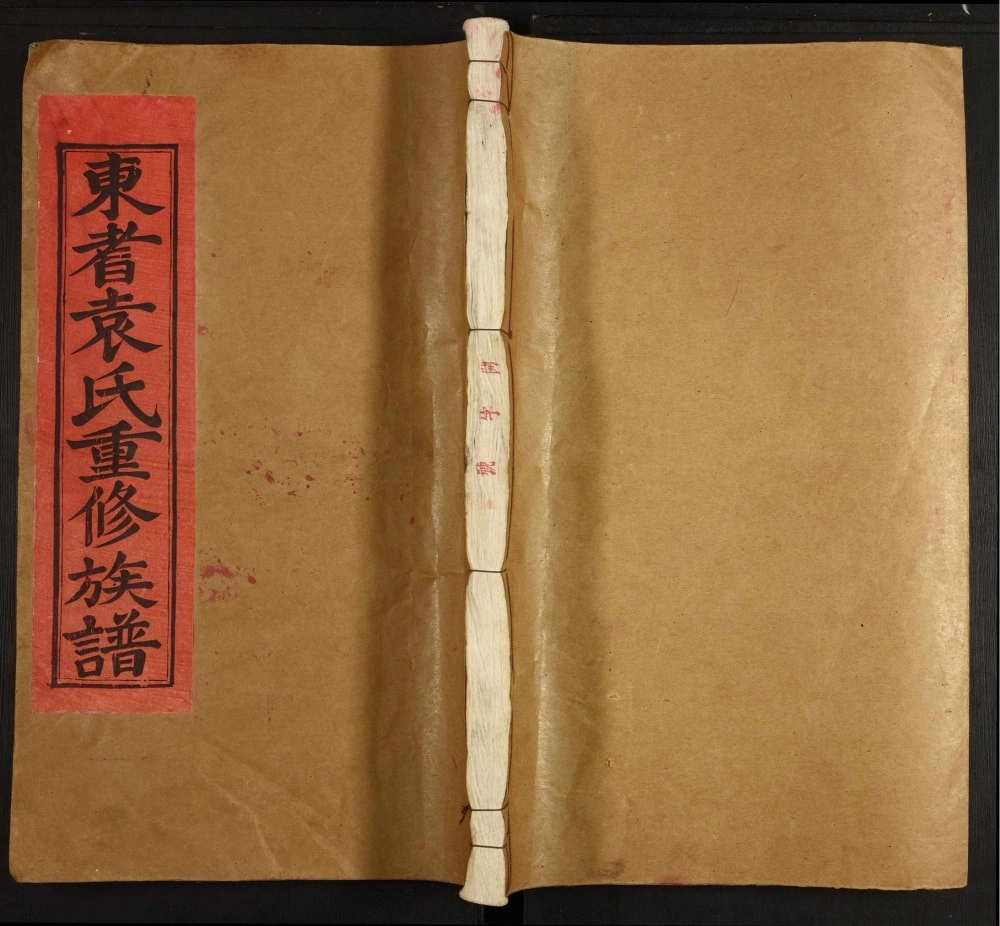 東耆袁氏重修族譜
字號